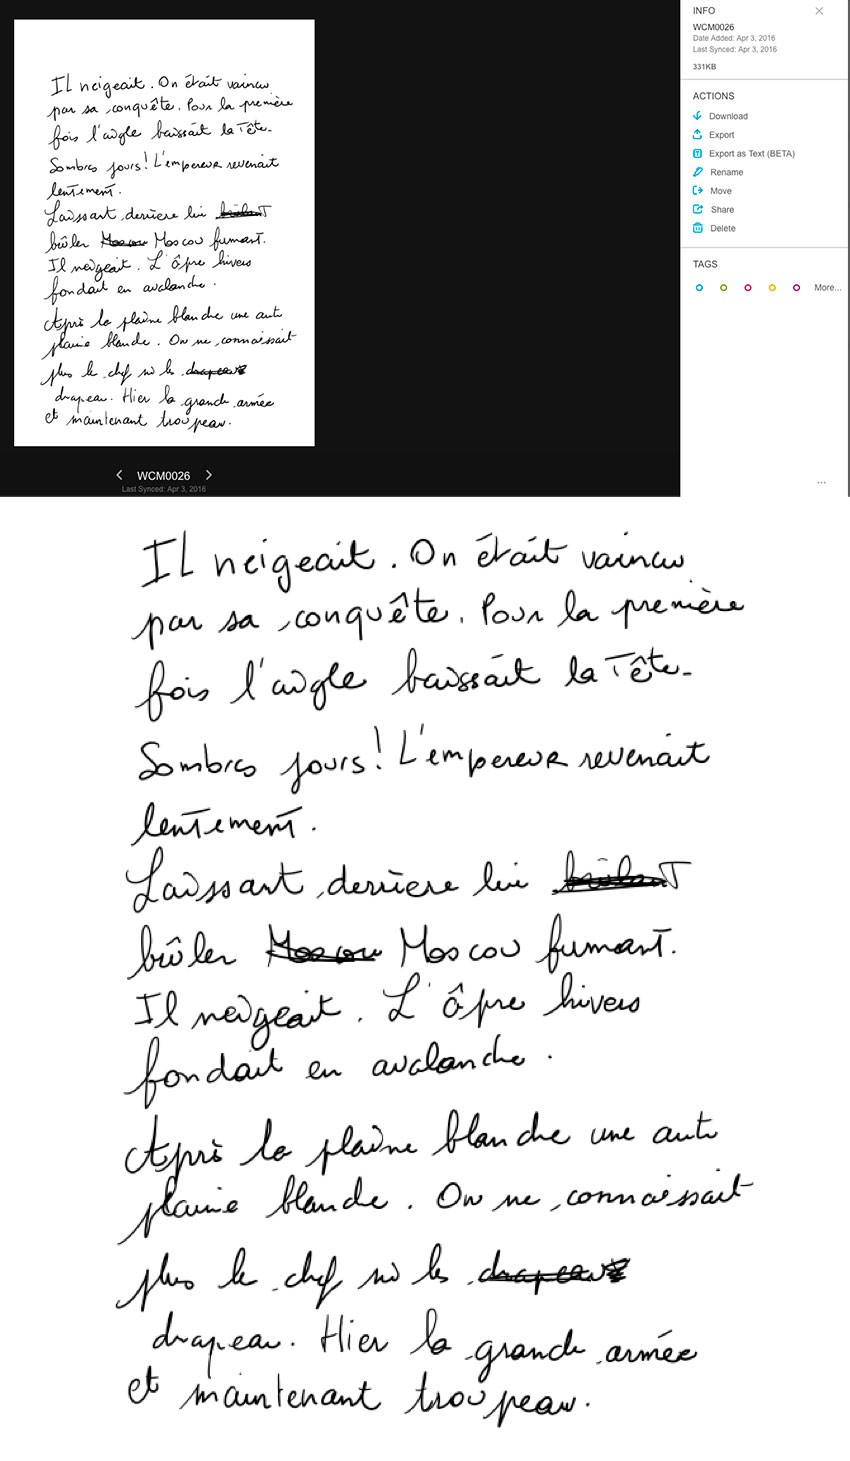 INFO
WCM0026
Date Added: Apr 3, 2016
Last Synced: Apr 3, 2016
331KB
ACTIONS
Download
Export
Export as Text (BETA)
Rename
Move
Share
Delete
TAGS
More...
Il neigeait. On était vaincu
par sa conquête. Pour la première
fois l'aigle baissait la Tête.
Sombres jours! L'empereur revenait
lentement.
Laissant derrière lui brûlant
brûler Moscou Moscou fumant.
Il neigeait. L'âpre hivers
fondait en avalanche.
Après la plaine blanche une aut
plaine blanche. On ne connaissait
plus le chef ni les drapeaux
drapeau. Hier la grande armée
et maintenant troupeau.
WCM0026
Last Synced: Apr 3, 2016
...
Il neigeait. On était vaincu
par sa conquête. Pour la première
fois l'aigle baissait la Tête.
Sombres jours! L'empereur revenait
lentement.
Laissant derrière lui brûlant
brûler Moscou Moscou fumant.
Il neigeait. L'âpre hivers
fondait en avalanche.
Après la plaine blanche une aut
plaine blande. On ne connaissait
plus le chef ni les drapeaux
drapeau. Hier la grande armée
et maintenant troupeau.